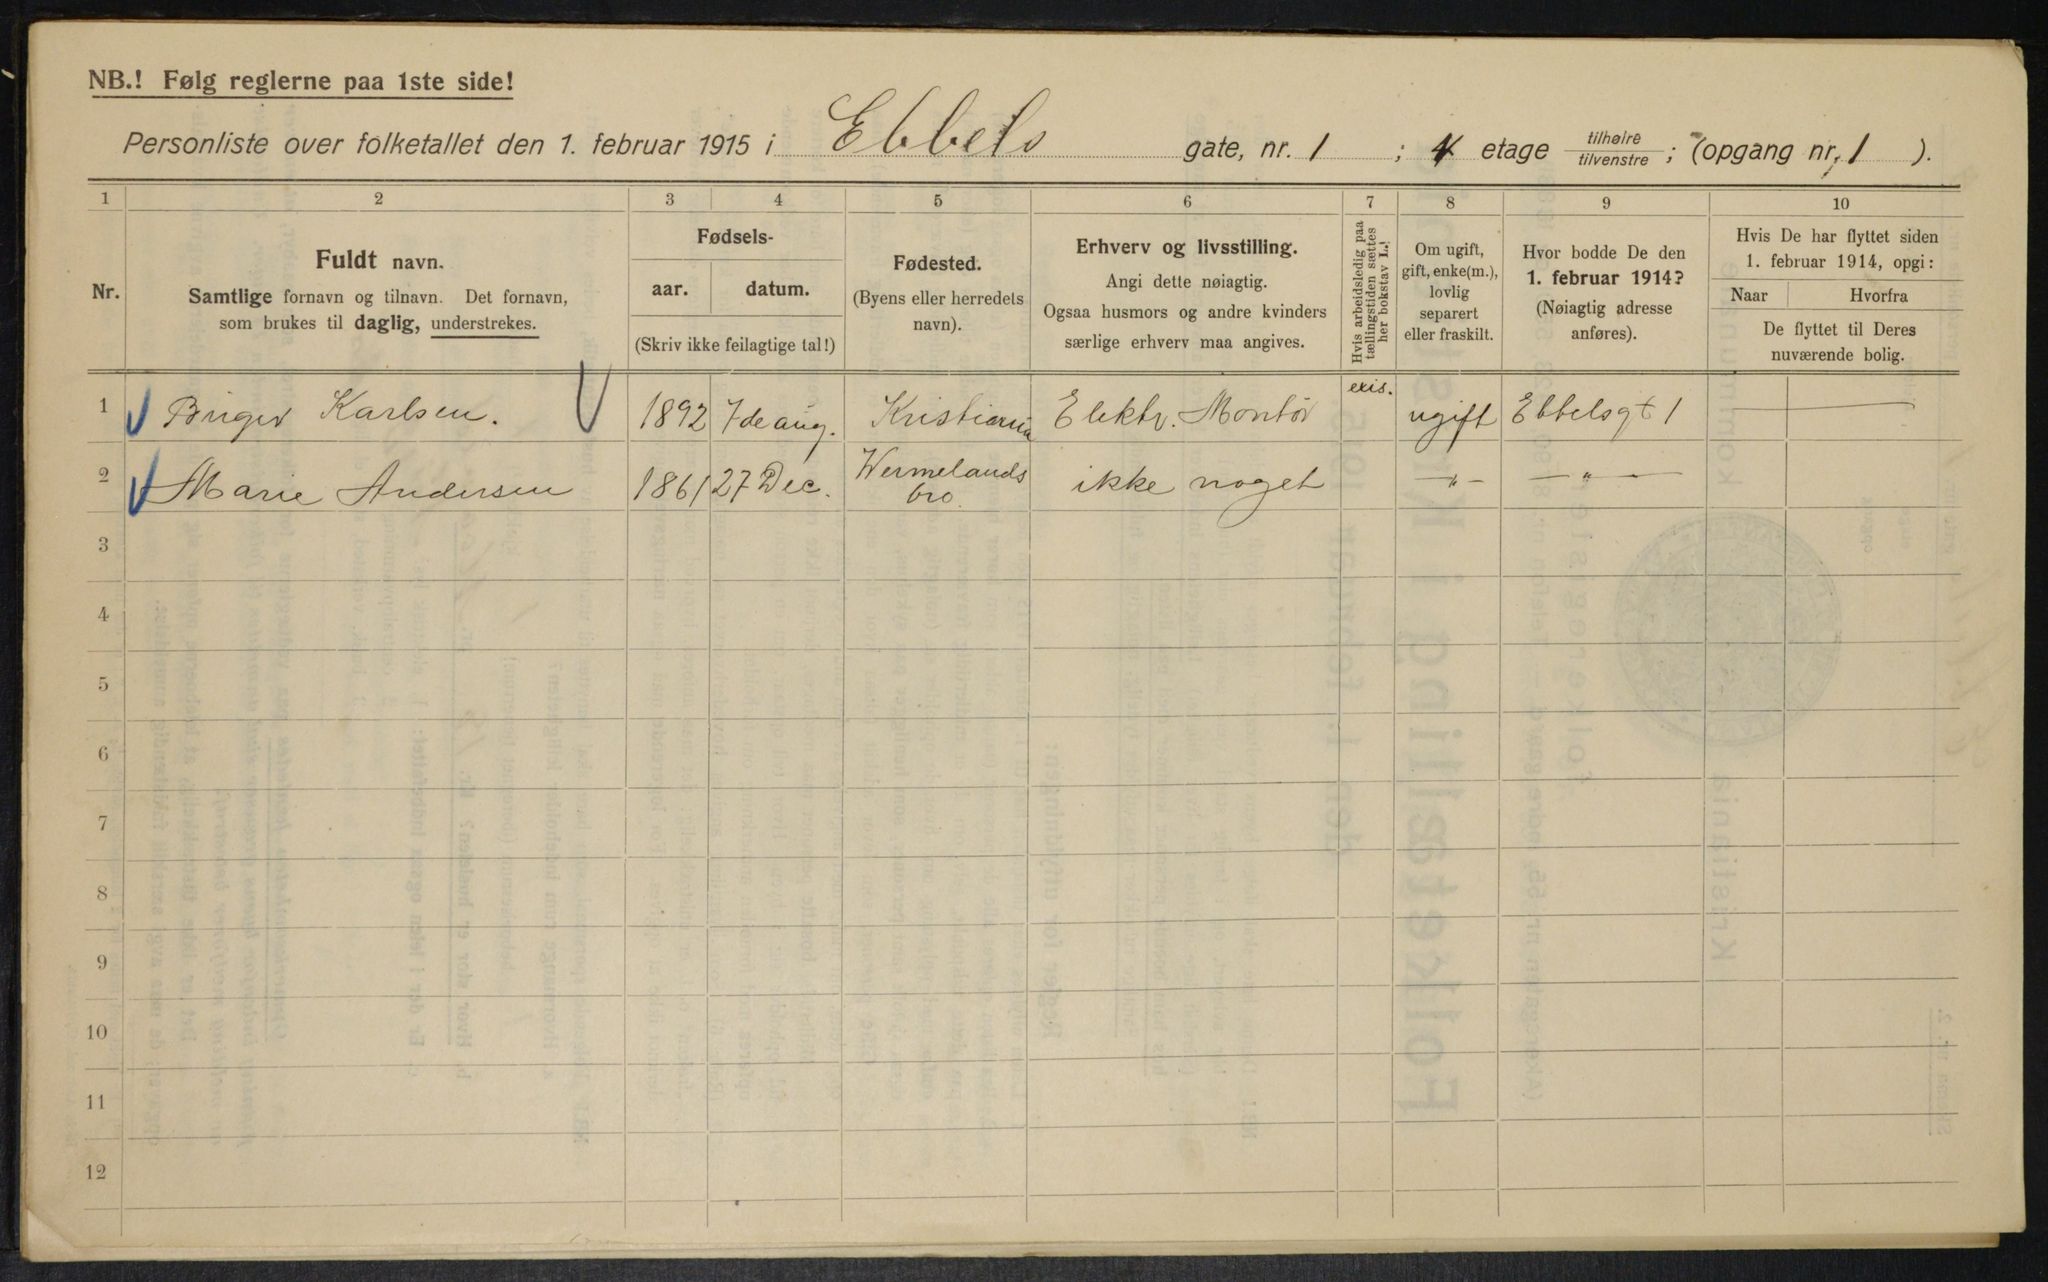 NB.! Følg reglerne paa 1ste side!
Personliste over folketallet den 1. februar 1915 i Ebbels gate, nr. 1 ; 4 etage tilhøire tilvenstre ; (opgang nr. 1 ).
1 2 3 4 5 6 7 8 9 10
Nr.
Fuldt navn.
Samtlige fornavn og tilnavn. Det fornavn,
som brukes til daglig, understrekes.
Fødsels-
aar. datum.
(Skriv ikke feilagtige tal!)
Fødested.
(Byens eller herredets
navn).
Erhverv og livsstilling.
Angi dette nøiagtig.
Ogsaa husmors og andre kvinders
særlige erhverv maa angives.
Hvis arbeidsledig paa
tællingstiden sættes
her bokstav L.!
Om ugift,
gift, enke(m.),
lovlig
separert
eller fraskilt.
Hvor bodde De den
1. februar 1914?
(Nøiagtig adresse
anføres).
Hvis De har flyttet siden
1. februar 1914, opgi:
Naar Hvorfra
De flyttet til Deres
nuværende bolig.
1 Birger Karlsen. 1892 7de aug. Kristiania Elektr. Montør ugift Ebbelsgt 1 —
2 Marie Andersen 1861 27 Dec. Wermelands
bro. ikke noget —"— —"—
3
4
5
6
7
8
9
10
11
12